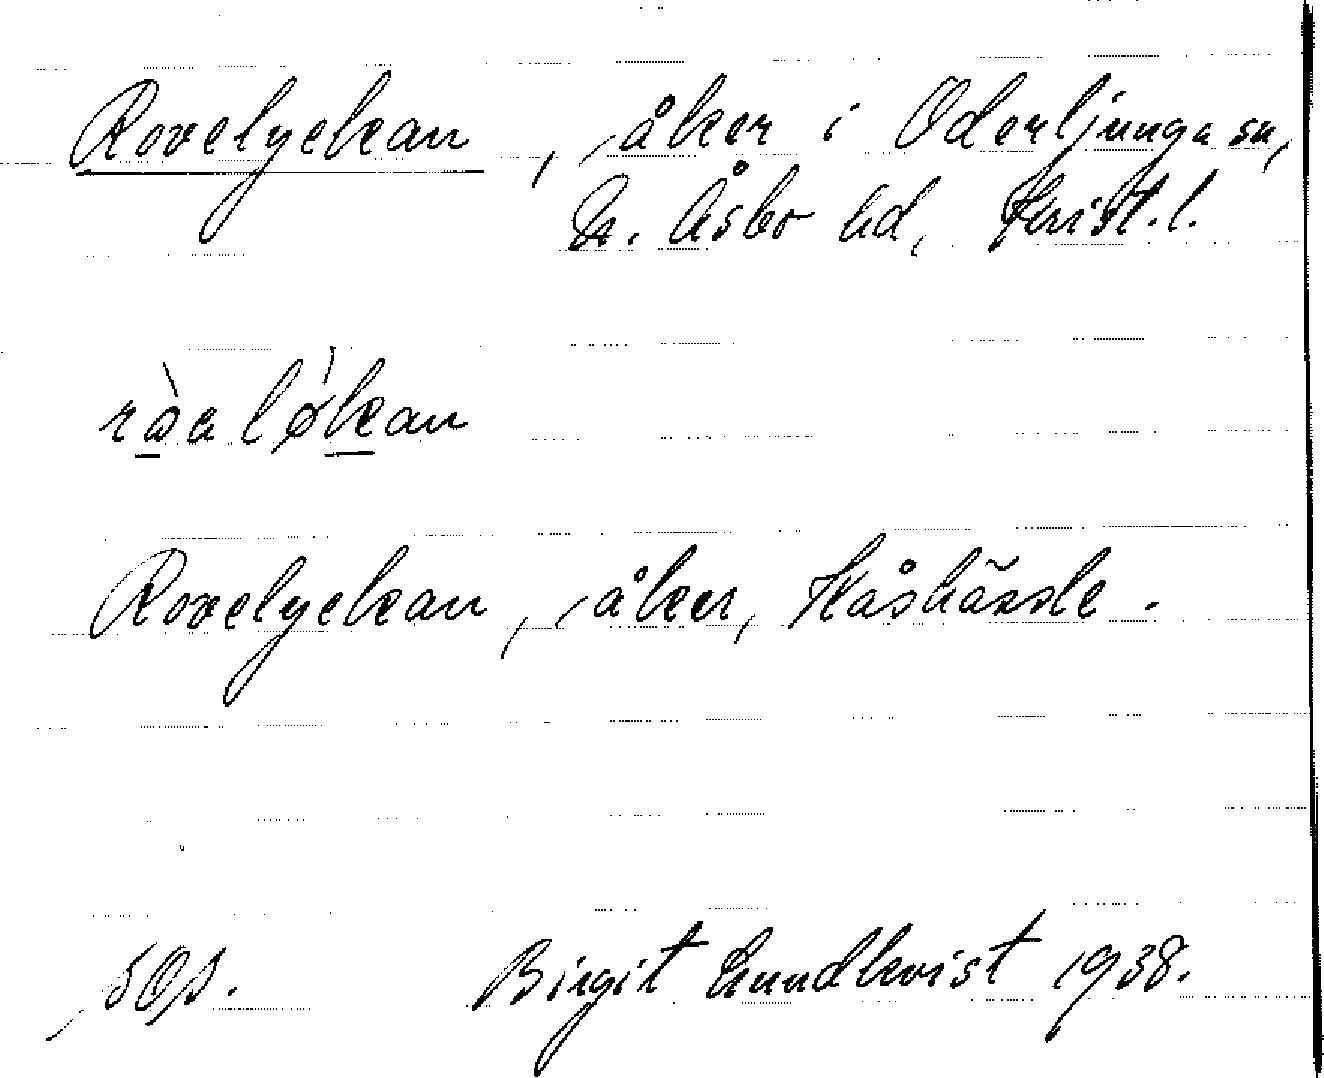 Rovelyckan, åker i Oderljunga sn,
N. Åsbo hd, Krist. l.
ròa lø̀kan
Rovelyckan, åker, Håshässle.
Birgit Lundkvist 1938.